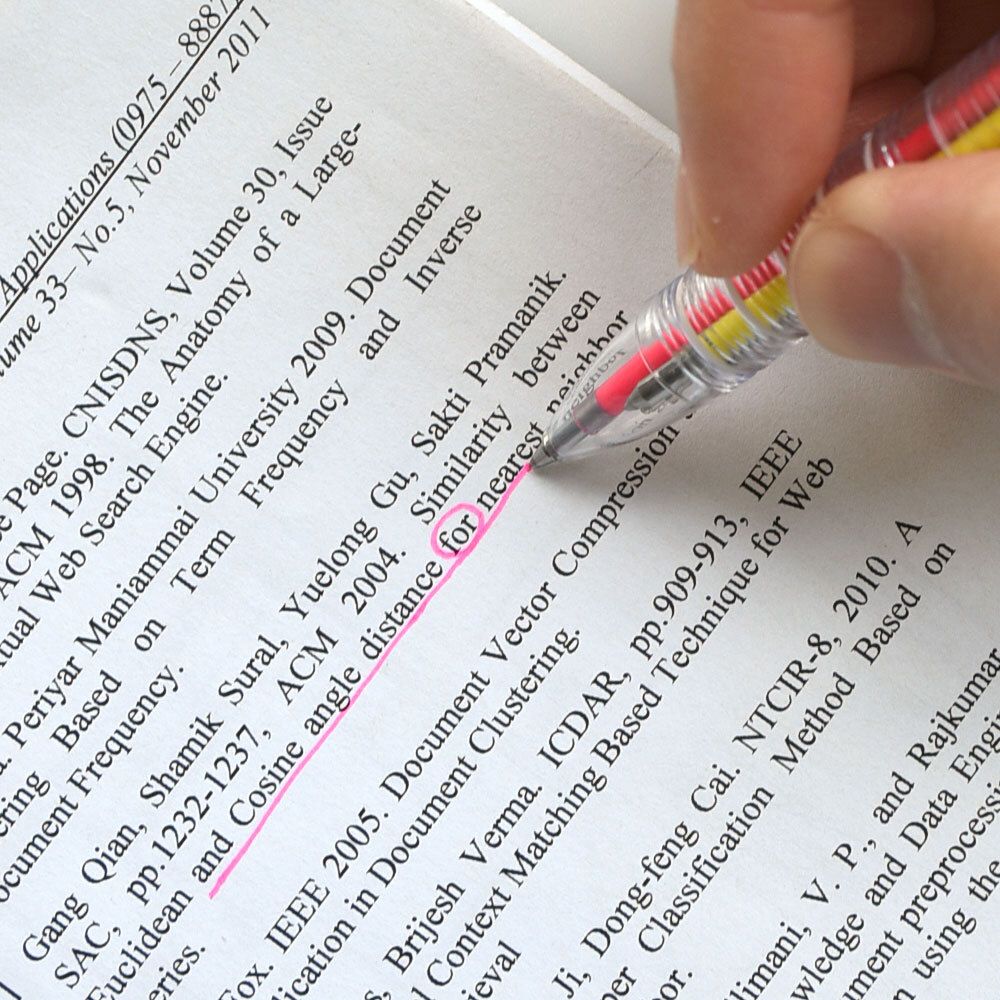 Applications (0975 – 8887)
ume 33– No.5, November 2011
e Page. CNISDNS, Volume 30, Issue
ACM 1998. The Anatomy of a Large-
tual Web Search Engine.
Periyar Maniammai University 2009. Document
ering Based on Term Frequency and Inverse
ocument Frequency.
Gang Qian, Shamik Sural, Yuelong Gu, Sakti Pramanik.
SAC, pp.1232-1237, ACM 2004. Similarity between
Euclidean and Cosine angle distance for nearest neighbor
eries.
Fox. IEEE 2005. Document Vector Compression
lication in Document Clustering.
Brijesh Verma. ICDAR, pp.909-913, IEEE
l Context Matching Based Technique for Web
ieval
Ji, Dong-feng Cai. NTCIR-8, 2010. A
er Classification Method Based on
or.
limani, V. P., and Rajkumar
wledge and Data Engi
ument preprocessi
using the